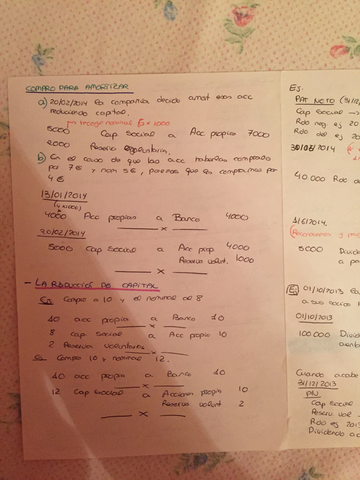 COMPRO PARA AMORTIZAR
a) 20/02/2014 la compañia decide amort esas acc
reduciendo capital.
valor nominal 5 x 1000
5000 Cap Social a Acc propias 7000
2000 Reserva voluntaria.
x
b) En el caso de que las acc habrían comprado
por 7€ y nom 5€, pones que las compramos por
4€
13/01/2014
4000 Acc propias a Banco 4000
x
20/02/2014
5000 Cap Social a Acc prop. 4000
Reserva volunt. 1000
x
- LA REDUCCIÓN DE CAPITAL
Ej Compro a 10 y el nominal de 8
10 acc propia a Banco 10
x
8 cap Social a Acc propia 10
2 Reserva voluntarias
x
Ej. Compro 10 y nominal 12.
10 acc propia a Banco 10
x
12 Cap Social a Acciones propia 10
Reserva volunt 2
x
Ej.
PAT NETO (31/12
Cap Social
Rdo neg ej 20
Rdo del ej 20
30/03/2014
40.000 Rdo d
1/6/2014
5000 Divid
a pa
Ej 01/10/2013
a sus socios
01/10/2013
100.000 Divid
Cuando acabe
31/12/2013
PN
Cap social
Reserv vol
Rdo ej 2013
Dividendo a c